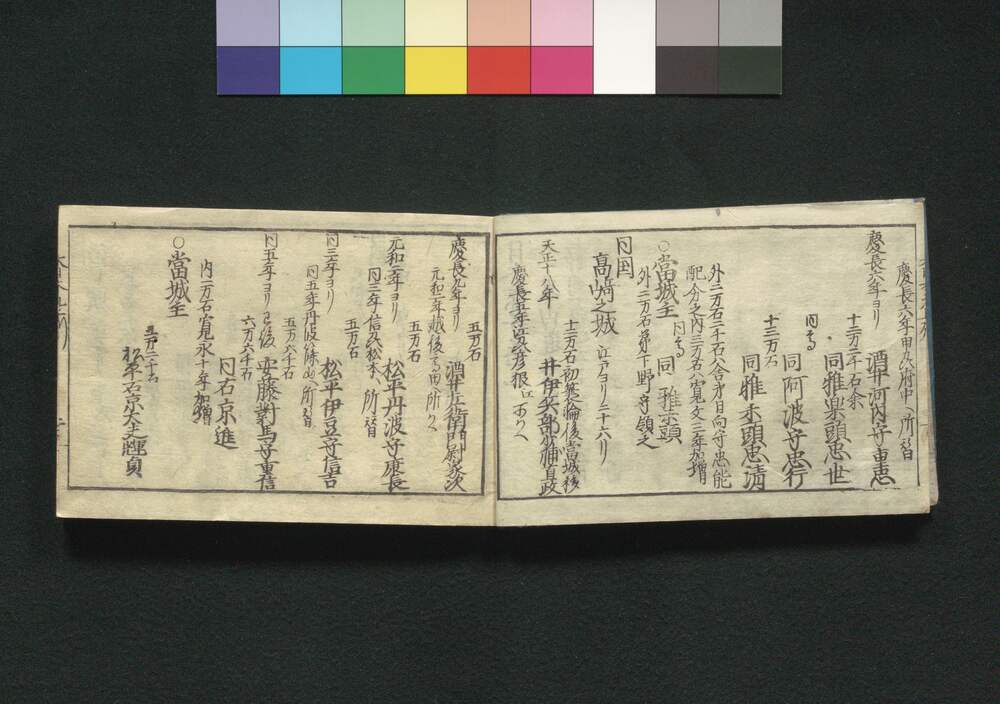 慶長六年甲刕府中ヘ所替
慶長六年ヨリ 酒井河内守重忠
十二万二千石余 同雅楽頭忠世
同 同阿波守忠行
十三万石 同雅楽頭忠清
外二万二千石ハ舎弟日向守忠能
配分之内三万石ハ寛文三年加増
○當城主 同 雅楽頭
外二万石弟下野守領之
同国
高崎之城 江戸ヨリ二十六リ
天正十八年 十二万石初箕輪後當城移 井伊兵部少輔直政
慶長五年江刕彦根江所かへ
慶長九年ヨリ 五万石 酒井左衛門尉家次
元和二年越後高田ヘ所かへ
元和二年ヨリ 五万石 松平丹波守康長
同三年信刕松本ヘ所替
同三年ヨリ 五万石 松平伊豆守信吉
同五年丹波篠山ヘ所替
同五年ヨリ已後 五万六千石 安藤對馬守重信
六万六千石 同右京進
内一万石寛永十年加増
○當城主
五万二千石 松平右京大夫輝貞